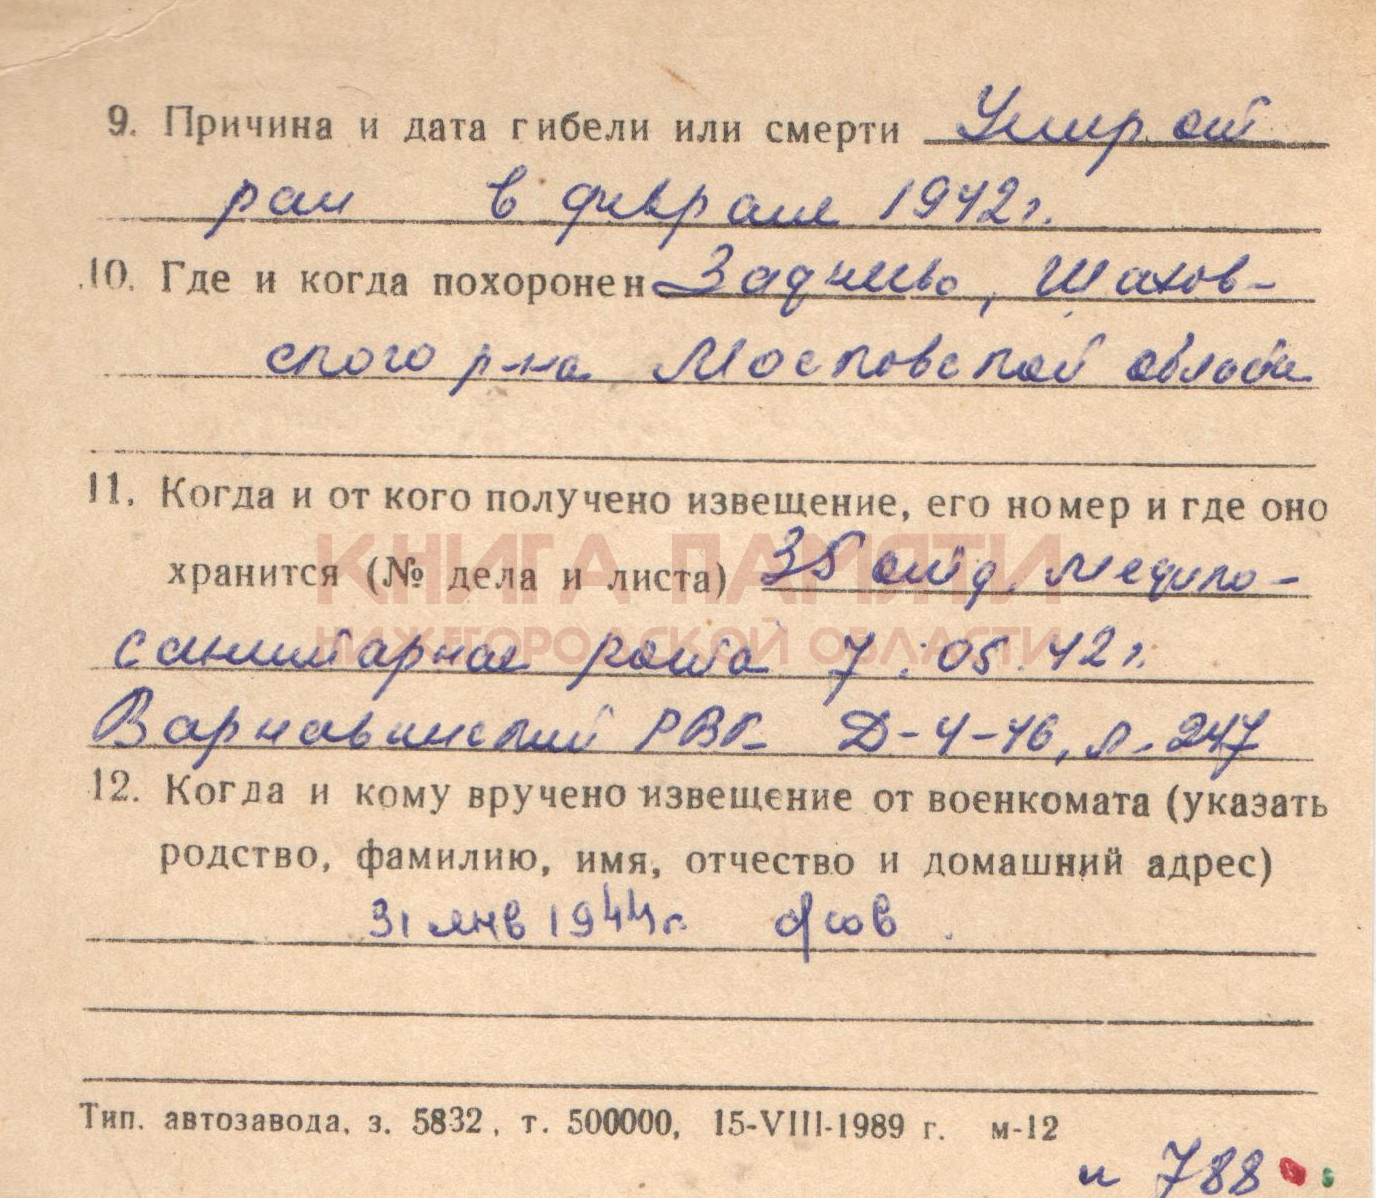 9. Причина и дата гибели или смерти Умер от
ран в феврале 1942г.
10. Где и когда похоронен Заднево, Шахов-
ского р-на Московской области
11. Когда и от кого получено извещение, его номер и где оно
хранится (№ дела и листа) 35 отд. медико-
КНИГА ПАМЯТИ
НИЖЕГОРОДСКОЙ ОБЛАСТИ
санитарная рота 7.05.42г.
Варнавинский РВК Д-4-46, л. 247
12. Когда и кому вручено извещение от военкомата (указать
родство, фамилию, имя, отчество и домашний адрес)
31 янв 1944г.
Тип. автозавода, з. 5832, т. 500000, 15-VIII-1989 г. м-12
788